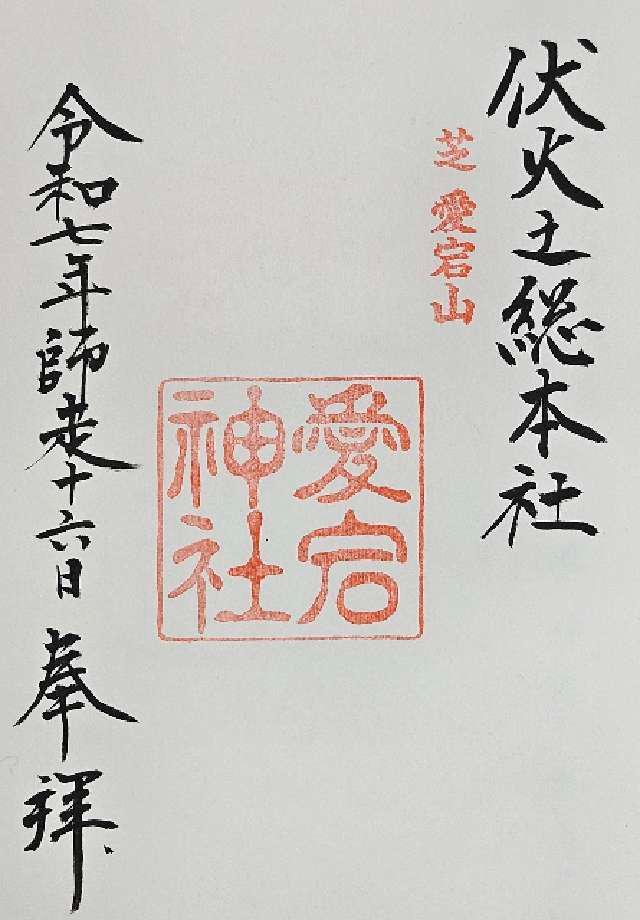 伏火之総本社
芝 愛宕山
愛宕
神社
令和七年師走十六日 奉拝